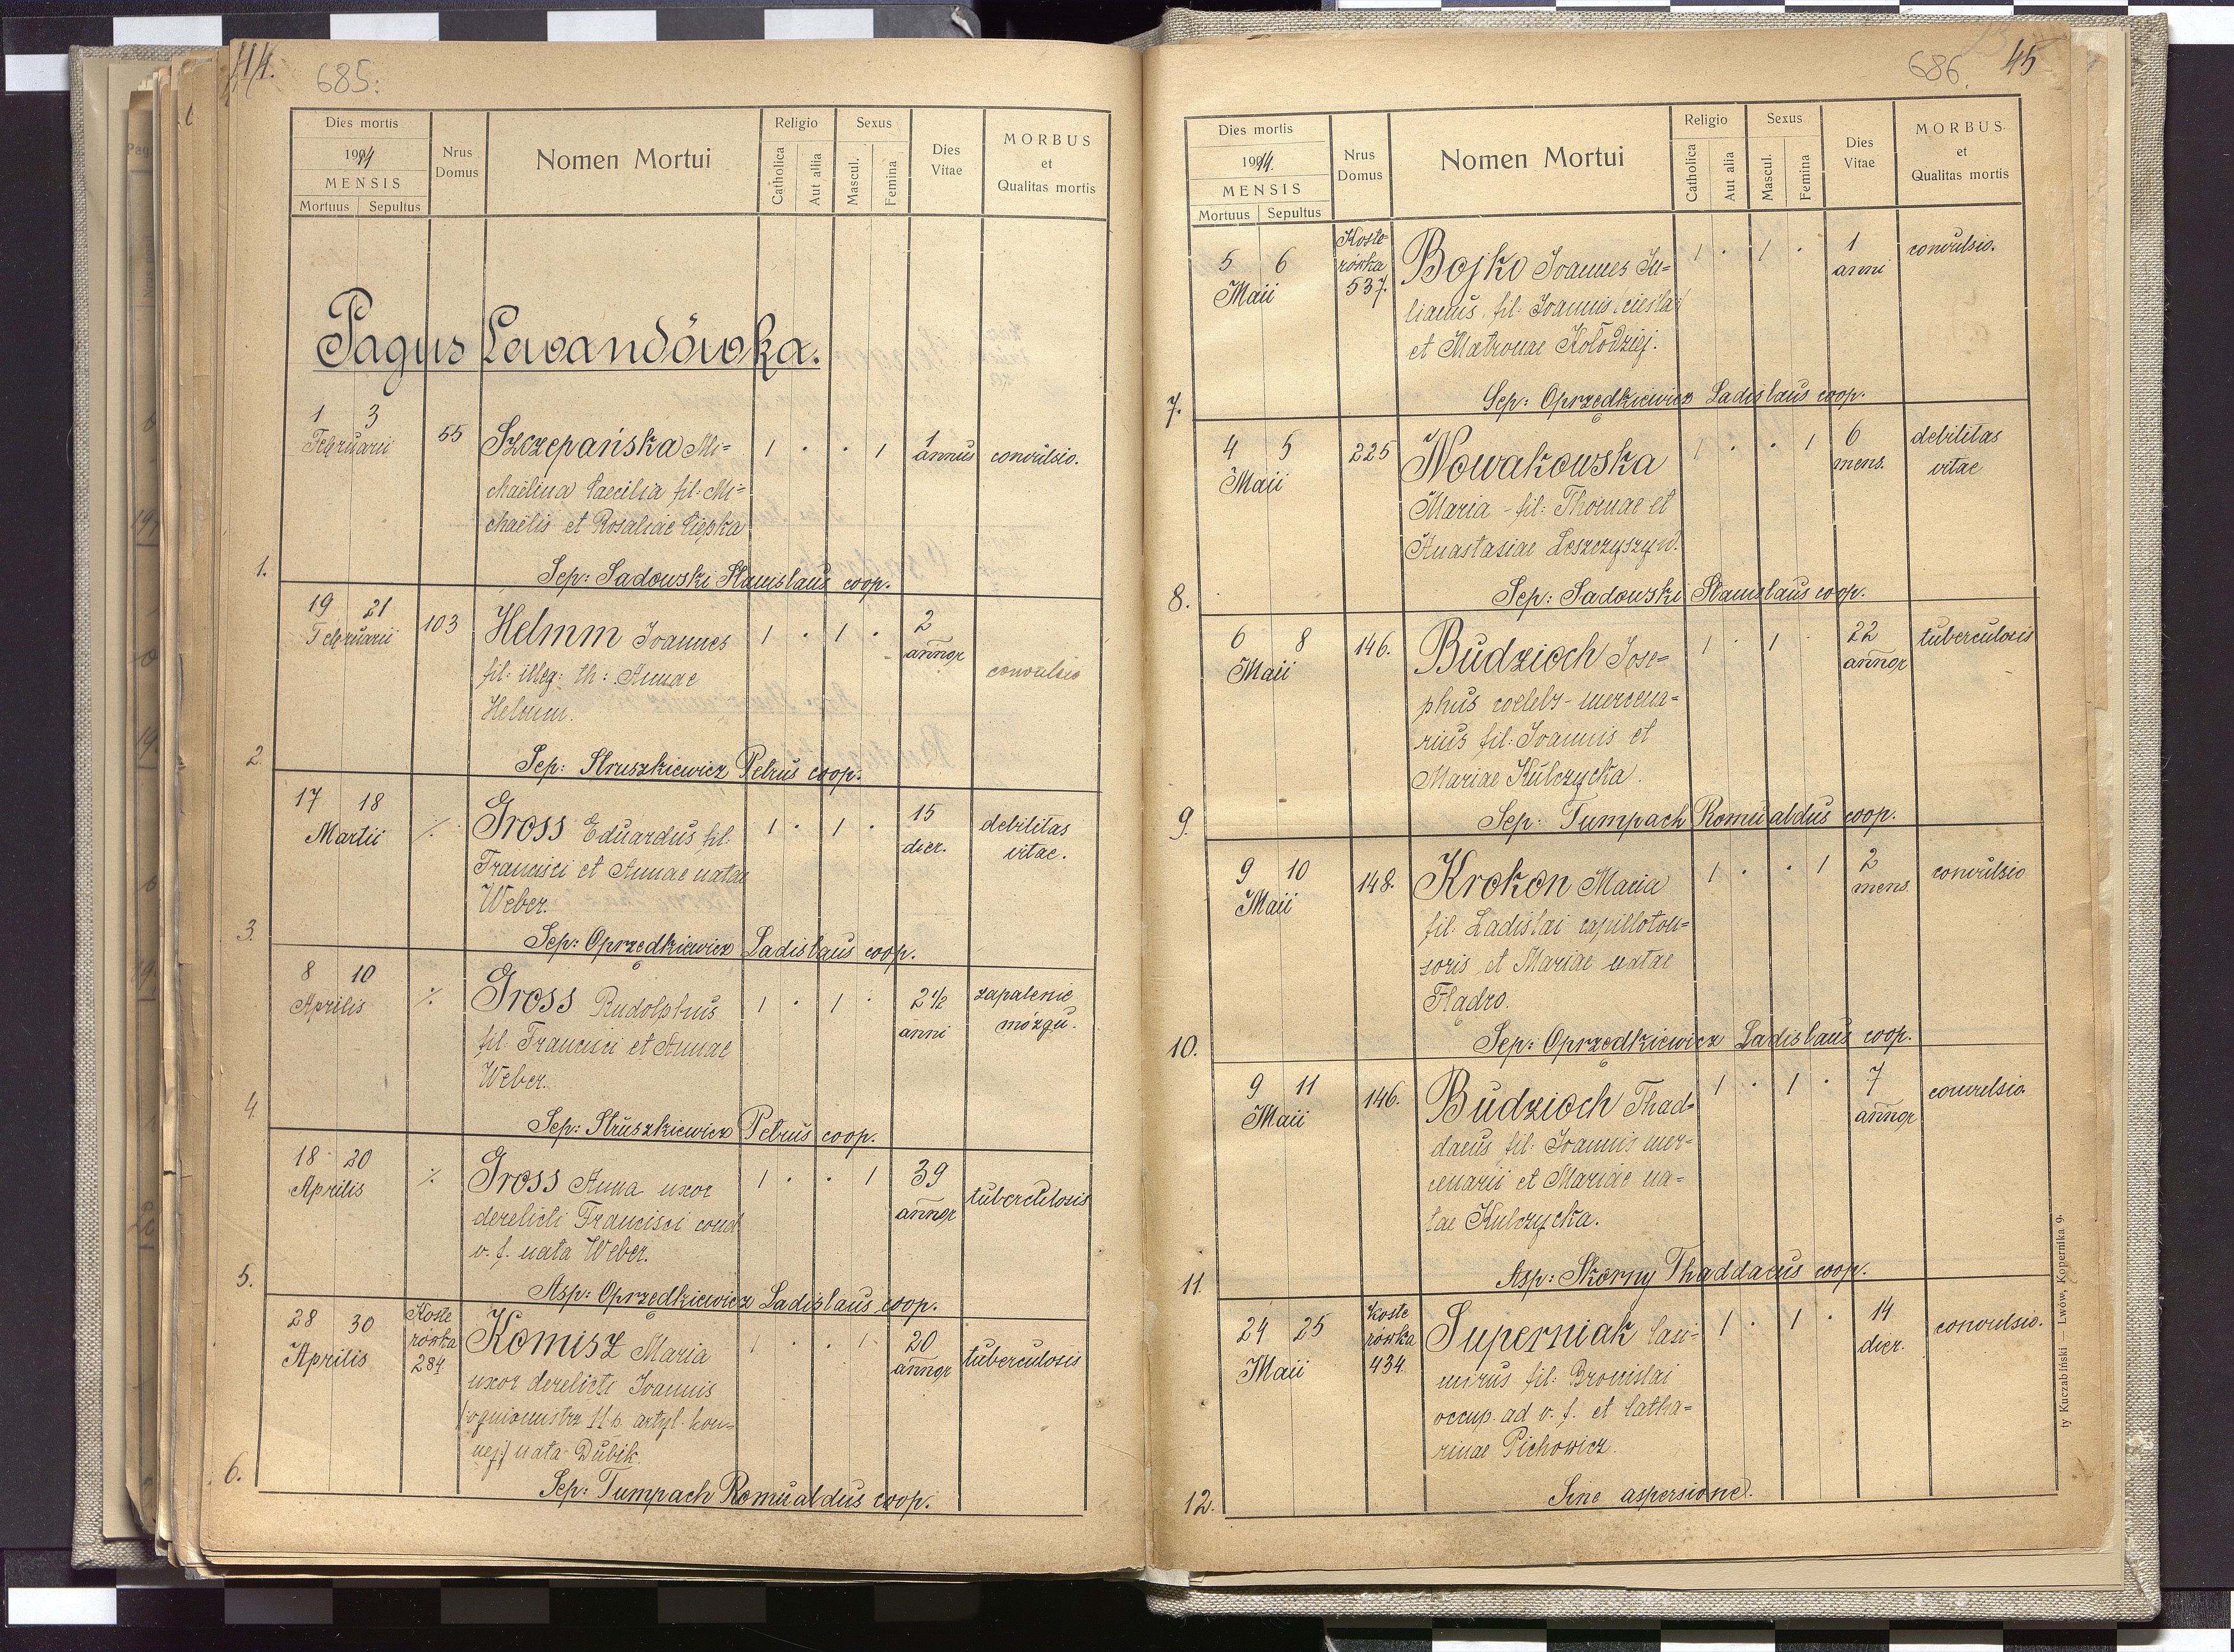 44.
685.
Dies mortis
1914
MENSIS
Mortuus Sepultus
Nrus Domus
Nomen Mortui
Religio
Catholica
Aut alia
Sexus
Mascul.
Femina
Dies Vitae
MORBUS
et
Qualitas mortis
Pagus Lewandówka.
1 3
Februarii
55
Szczepańska Mi=
chaëlina Caecilia fil: Mi=
chaëlis et Rosaliae Ciępka
1 . . 1
1
annus
convulsio.
1.
Sep: Sadowski Stanislaus coop.
19 21
Februarii
103
Helmm Joannes
fil: illeg: th: Annae
Helmm.
1 . 1 .
2
annor
convulsio
2.
Sep: Struszkiewicz Petrus coop.
17 18
Martii
·/·
Gross Eduardus fil.
Francisci et Annae natae
Weber.
1 . 1 .
15
dier.
debilitas
vitae.
3.
Sep: Oprzędkiewicz Ladislaus coop.
8 10
Aprilis
·/·
Gross Rudolphus
fil: Francisci et Annae
Weber.
1 . 1 .
2 1/2
anni
zapalenie
mózgu.
4.
Sep: Struszkiewicz Petrus coop.
18 20
Aprilis
·/·
Gross Anna uxor
derelicti Francisci cond
v. f. nata Weber.
1 . . 1
39
annor
tuberculosis
5.
Asp: Oprzędkiewicz Ladislaus coop.
28 30
Aprilis
Koste
rówka
284
Komisz Maria
uxor derelicti Joannis
/ogniomistrz 11 p. artyl. kon=
nej/ nata Dubik.
1 . . 1
20
annor
tuberculosis
6.
Sep: Tumpach Romualdus coop.
686.
45
Dies mortis
1914.
MENSIS
Mortuus Sepultus
Nrus Domus
Nomen Mortui
Religio
Catholica
Aut alia
Sexus
Mascul.
Femina
Dies Vitae
MORBUS
et
Qualitas mortis
5 6
Maii
Koste=
rówka
537.
Bojko Joannes Ju=
lianus, fil: Joannis /cieśla/
et Matronae Kołodziej.
1 . 1 .
1
anni
convulsio.
7.
Sep: Oprzędkiewicz Ladislaus coop.
4 5
Maii
225
Nowakowska
Maria - fil: Thomae et
Anastasiae Leszczyszyn.
1 . . 1
6
mens.
debilitas
vitae
8.
Sep: Sadowski Stanislaus coop.
6 8
Maii
146.
Budzioch Jose=
phus coelebs - mercena=
rius fil: Joannis et
Mariae Kulczycka.
1 . 1 .
22
annor
tuberculosis
9.
Sep: Tumpach Romualdus coop.
9 10
Maii
148.
Krokon Maria
fil: Ladislai capilloton=
soris et Mariae natae
Fladro.
1 . . 1
2
mens.
convulsio
10.
Sep: Oprzędkiewicz Ladislaus coop.
9 11
Maii
146.
Budzioch Thad=
daeus fil: Joannis mer=
cenarii et Mariae na=
tae Kulczycka.
1 . 1 .
7
annor
convulsio.
11.
Asp: Skorny Thaddaeus coop.
24 25
Maii
Koste
rówka
434.
Superniak Casi=
mirus fil: Bronislai
occup. ad v. f. et Catha=
rinae Pichowicz.
1 . 1 .
14
dier.
convulsio.
12.
Sine aspersione.
ty Kuczabiński — Lwów, Kopernika 9.